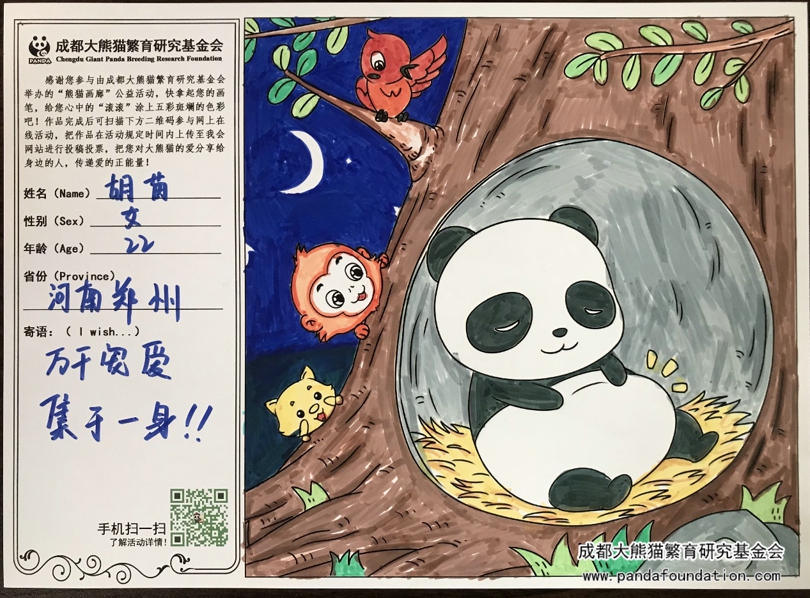 成都大熊猫繁育研究基金会
Chengdu Giant Panda Breeding Research Foundation
PANDA
感谢您参与由成都大熊猫繁育研究基金会
举办的“熊猫画廊”公益活动，快拿起您的画
笔，给您心中的“滚滚”涂上五彩斑斓的色彩
吧！作品完成后可扫描下方二维码参与网上在
线活动，把作品在活动规定时间内上传至我会
网站进行投稿投票，把您对大熊猫的爱分享给
身边的人，传递爱的正能量！
姓名（Name） 胡苗
性别（Sex） 女
年龄（Age） 22
省份（Province）
河南郑州
寄语：（I wish...）
万千宠爱
集于一身!!
手机扫一扫
了解活动详情！
成都大熊猫繁育研究基金会
www.pandafoundation.com